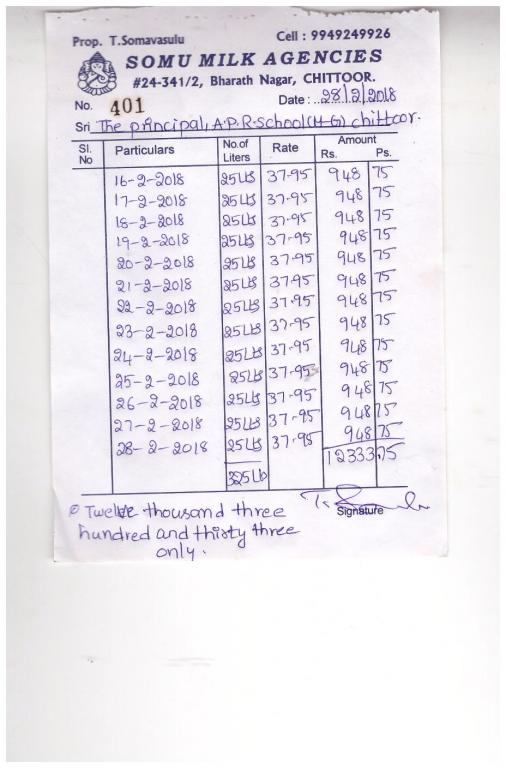 Prop. T.Somavasulu Cell : 9949249926
SOMU MILK AGENCIES
#24-341/2, Bharath Nagar, CHITTOOR.
No. 401 Date : 28/2/2018
Sri The principal, A.P.R.School(H-G) chittoor.
Sl. No Particulars No.of Liters Rate Amount Rs. Ps.
16-2-2018 25Lts 37-95 948 75
17-2-2018 25Lts 37.95 948 75
18-2-2018 25Lts 37.95 948 75
19-2-2018 25Lts 37-95 948 75
20-2-2018 25Lts 37.95 948 75
21-2-2018 25Lts 37.95 948 75
22-2-2018 25Lts 37.95 948 75
23-2-2018 25Lts 37.95 948 75
24-2-2018 25Lts 37.95 948 75
25-2-2018 25Lts 37.95 948 75
26-2-2018 25Lts 37.95 948 75
27-2-2018 25Lts 37-95 948 75
28-2-2018 25Lts 37.95 948 75
12333.75
325Lts
Twelve thousand three
hundred and thirty three
only.
Signature